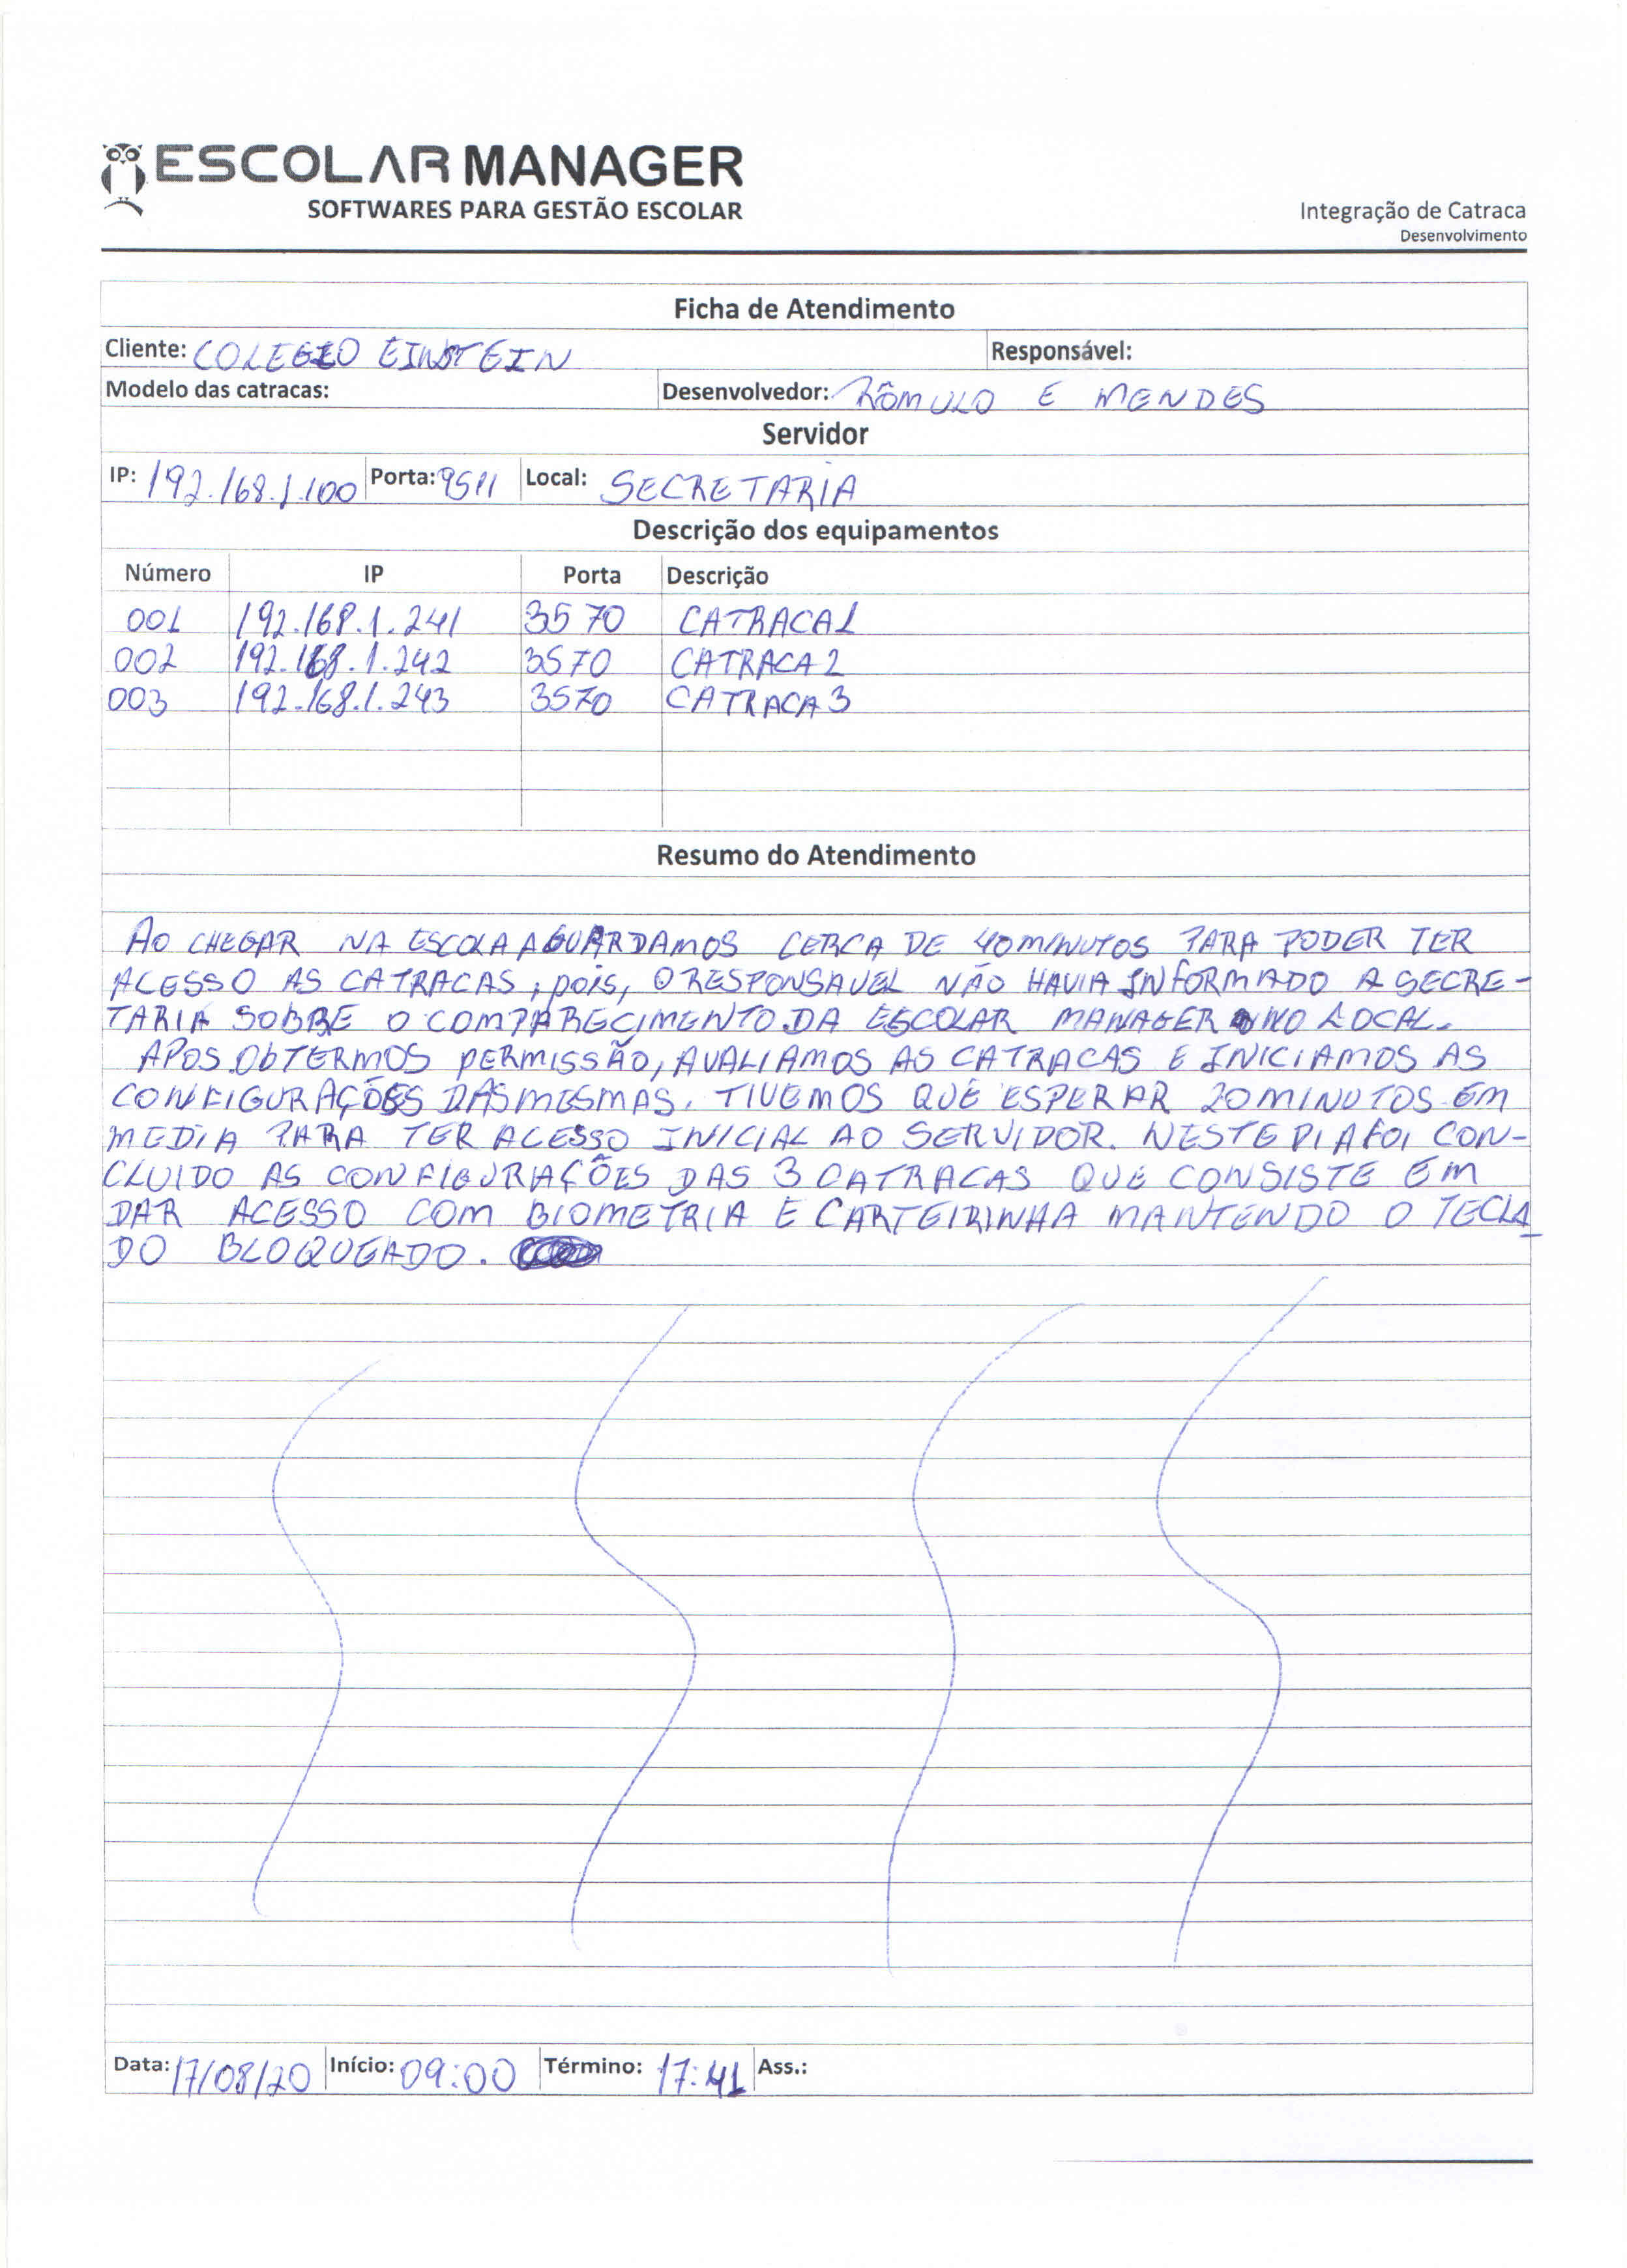 ESCOLAR MANAGER
SOFTWARES PARA GESTÃO ESCOLAR
Integração de Catraca
Desenvolvimento
Ficha de Atendimento
Cliente: COLEGIO EINSTEIN Responsável:
Modelo das catracas: Desenvolvedor: RÔMULO E MENDES
Servidor
IP: 192.168.1.100 Porta: 9511 Local: SECRETARIA
Descrição dos equipamentos
Número IP Porta Descrição
001 192.168.1.241 3570 CATRACA 1
002 192.168.1.242 3570 CATRACA 2
003 192.168.1.243 3570 CATRACA 3
Resumo do Atendimento
AO CHEGAR NA ESCOLA AGUARDAMOS CERCA DE 40 MINUTOS PARA PODER TER
ACESSO AS CATRACAS, pois, O RESPONSAVEL NÃO HAVIA INFORMADO A SECRE-
TARIA SOBRE O COMPARECIMENTO DA ESCOLAR MANAGER NO LOCAL.
APOS OBTERMOS PERMISSÃO, AVALIAMOS AS CATRACAS E INICIAMOS AS
CONFIGURAÇÕES DAS MESMAS. TIVEMOS QUE ESPERAR 20 MINUTOS EM
MEDIA PARA TER ACESSO INICIAL AO SERVIDOR. NESTE DIA FOI CON-
CLUIDO AS CONFIGURAÇÕES DAS 3 CATRACAS QUE CONSISTE EM
DAR ACESSO COM BIOMETRIA E CARTEIRINHA MANTENDO O TECLA_
DO BLOQUEADO.
Data: 17/08/20 Início: 09:00 Término: 17:41 Ass.: